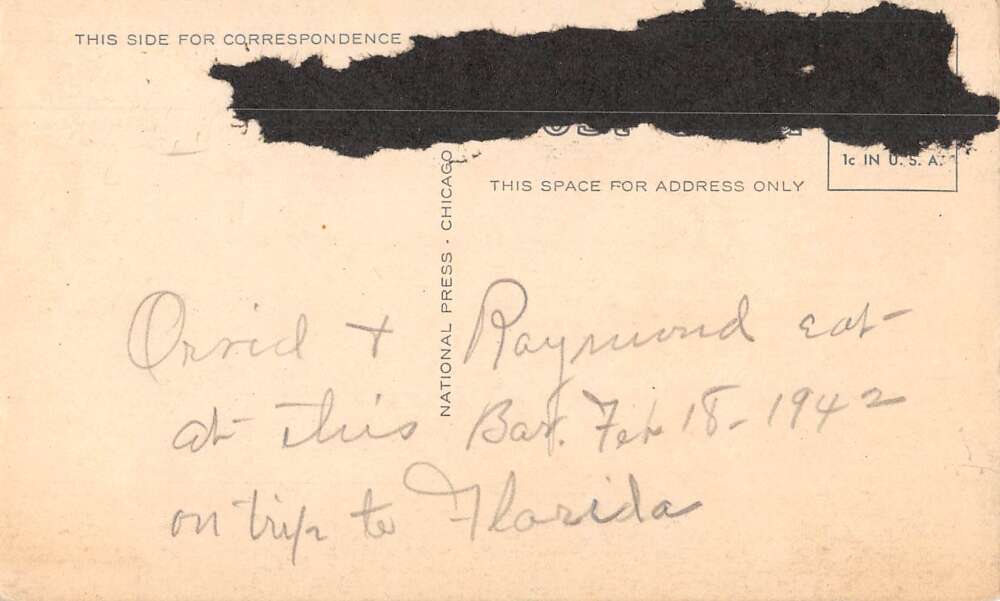 THIS SIDE FOR CORRESPONDENCE
1c IN U. S. A.
THIS SPACE FOR ADDRESS ONLY
NATIONAL PRESS - CHICAGO
Orvid + Raymond eat
at this Bar. Feb 18 - 1942
on trip to Florida